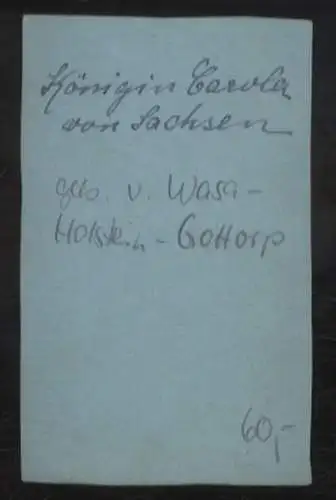 Königin Carola
von Sachsen
geb. v. Wasa-
Holstein-Gottorp
60,-